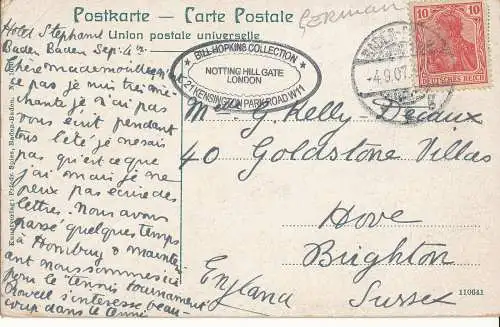 Postkarte – Carte Postale
GERMAN
Union postale universelle
Hotel Stephanie
Baden Baden Sep. 4
Chère Mademoiselle n'est
ce pas je suis très mé-
chante je n'ai pas
vous écrit pendant
tous l'été je ne sais
pas qu'est ce que
j'ai mais je ne
peux pas écrire des
lettres. Nous avons
passé quelques temps
à Hombourg & mainte-
ant nous sommes ici
pour le tennis tournament
Rowell s'interesse beau-
coup dans le tennis
BILL HOPKINS COLLECTION
NOTTING HILL GATE
LONDON
21 KENSINGTON PARK ROAD W11
BADEN-
4.9.07
10 10
DEUTSCHES REICH
Mlle G. Kelly-Decaux
40 Goldstone Villas
Hove
Brighton
Sussex
England
110641